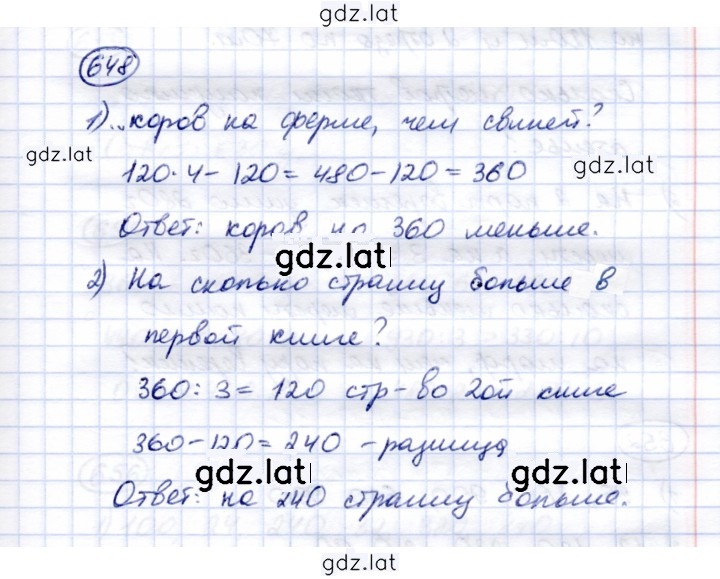 gdz.lat
648
1) ..коров на ферме, чем свиней?
gdz.lat gdz.lat
120·4-120=480-120=360
Ответ: коров на 360 меньше.
gdz.lat
2) На сколько страниц больше в
первой книге?
gdz.lat gdz.lat
360:3=120 стр-во 2ой книге
360-120=240 -разница
gdz.lat
Ответ: на 240 страниц больше.
gdz.lat gdz.lat
gdz.lat